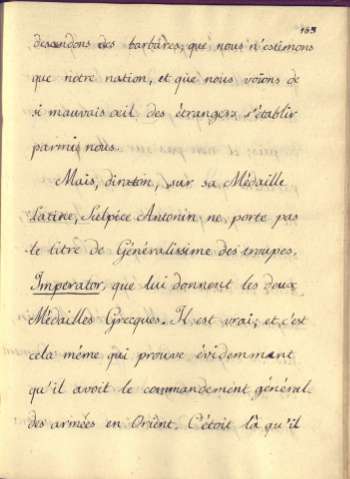 163
descendons des barbares, que nous n'estimons
que notre nation, et que nous voïons de
si mauvais œil des étrangers s'établir
parmi nous.
Mais, dira-t-on, sur sa Médaille
Latine, Sulpice Antonin ne porte pas
le titre de Généralissime des troupes,
Imperator, que lui donnent les deux
Médailles Grecques. Il est vrai; et c'est
cela même qui prouve évidemment
qu'il avoit le commandement général
des armées en Orient. C'étoit là qu'il